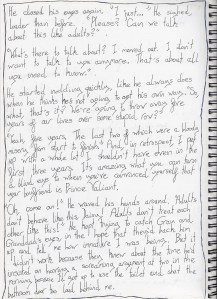 He closed his eyes again. "I just..." He sighed,
louder than before. "Please? Can we talk
about this like adults?"
"What's there to talk about? I moved out. I don't
want to talk to you anymore. That's about all
you need to know."
He started nodding quickly, like he always does
when he thinks he's not going to get his own way. "So,
what, that's it? You're going to throw away five
years of our lives over some stupid row?"
"Yeah, five years. The last two of which were a bloody
, you don't Daniel. And, in retrospect, I put
up with a whole lot I shouldn't have even in the
first three years. It's amazing what you can tune
out when you've convinced yourself that
your boyfriend is Prince Valiant."
"Oh, come on!" He waved his hands around. "Adults
don't behave like this, Jenny! Adults don't treat each
other like this!" He kept trying to catch Gran and
Granddad's eyes, in the hopes that they'd back him
up and tell me how unreasonable I was being. But it
didn't work because they knew about the time he'd
insisted on having a screaming argument at two in the
morning because I got up to use the toilet and shut the
bathroom door too loud behind me.